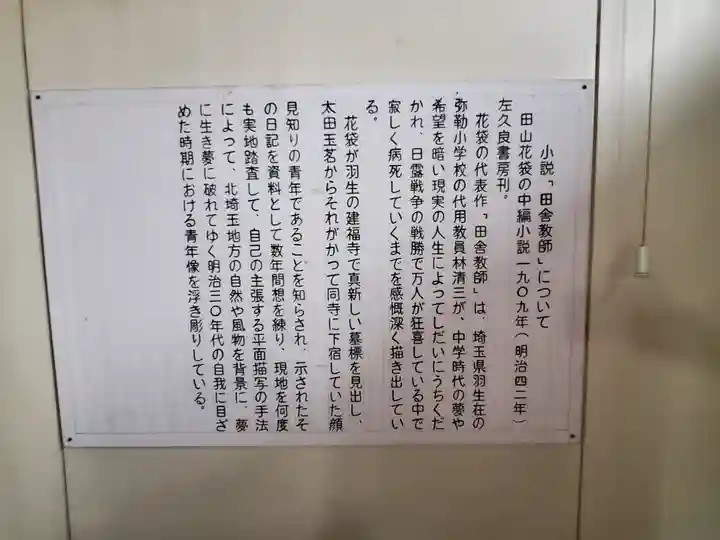 小説「田舎教師」について
田山花袋の中編小説一九〇九年（明治四二年）
左久良書房刊。
花袋の代表作「田舎教師」は、埼玉県羽生在の
弥勒小学校の代用教員林清三が、中学時代の夢や
希望を暗い現実の人生によってしだいにうちくだ
かれ、日露戦争の戦勝で万人が狂喜している中で
寂しく病死していくまでを感慨深く描き出してい
る。
花袋が羽生の建福寺で真新しい墓標を見出し、
太田玉茗からそれがかって同寺に下宿していた顔
見知りの青年であることを知らされ、示されたそ
の日記を資料として数年間想を練り、現地を何度
も実地踏査して、自己の主張する平面描写の手法
によって、北埼玉地方の自然や風物を背景に、夢
に生き夢に破れてゆく明治三〇年代の自我に目ざ
めた時期における青年像を浮き彫りしている。